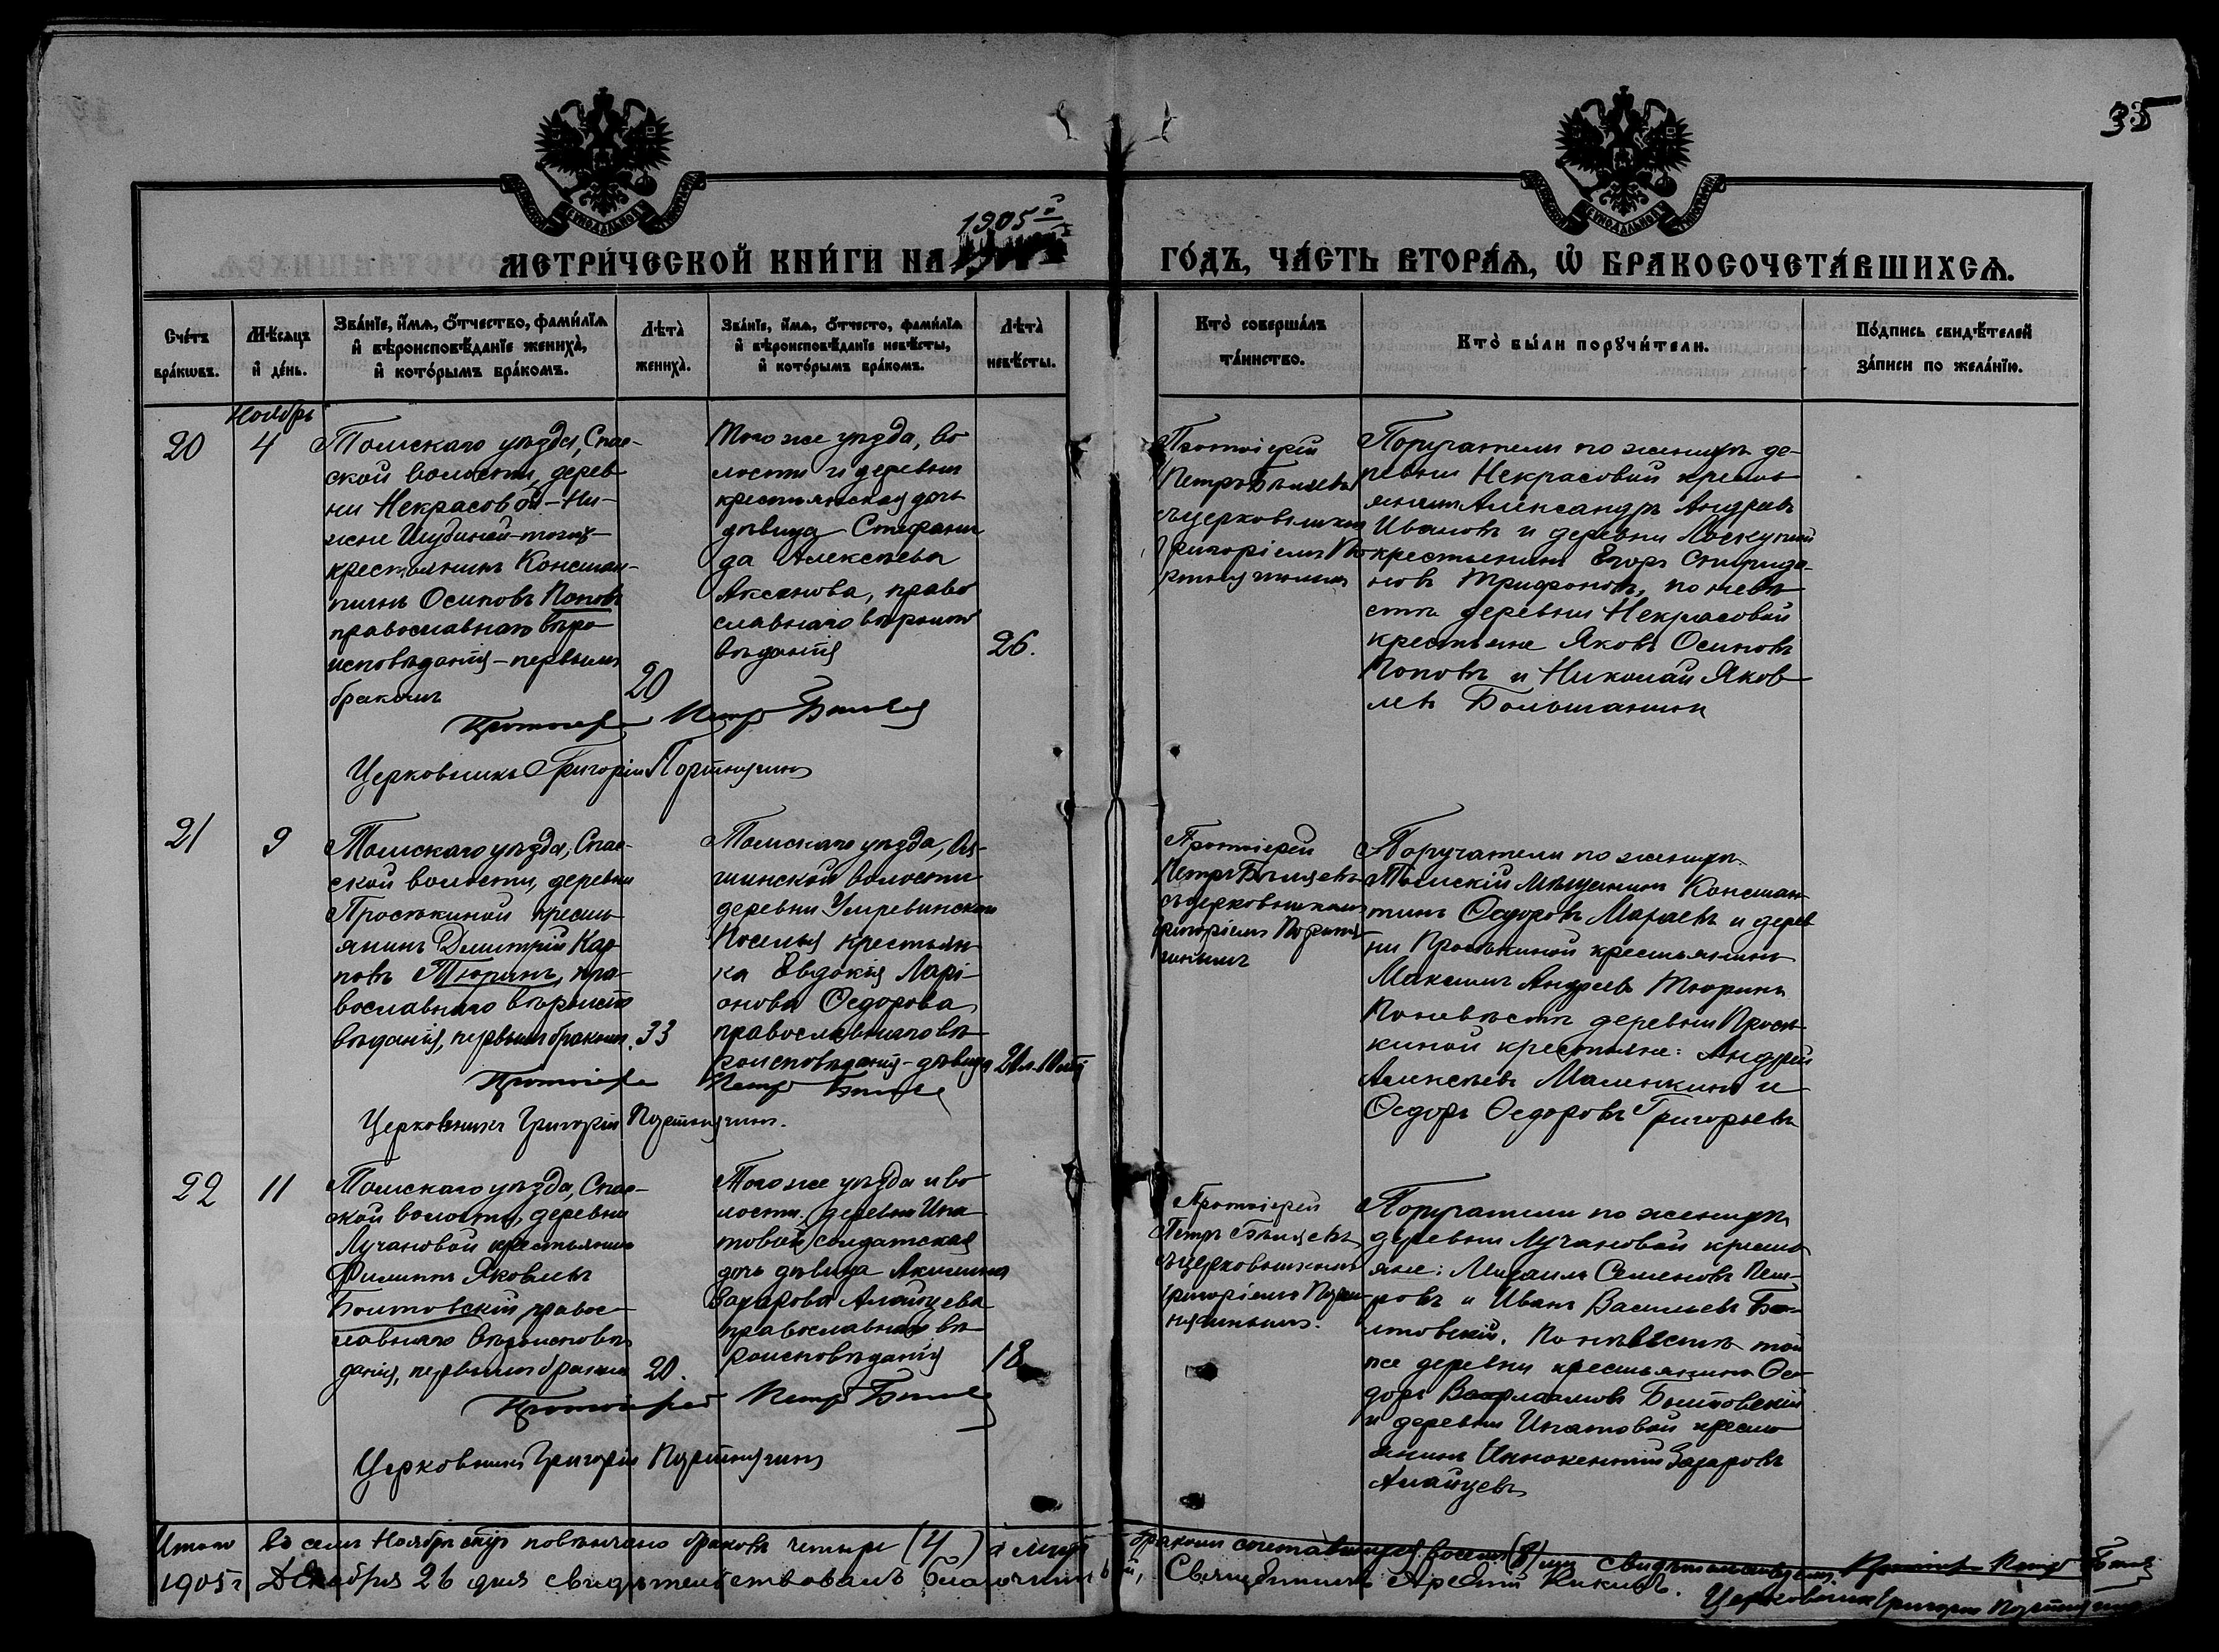 35
1905 й
МЕТРИ́ЧЕСКОЙ КНИ́ГИ НА
ГО́ДЪ, ЧА́СТЬ ВТОРА́Ѧ, Ѡ҆ БРАКОСОЧЕТА́ВШИХСѦ.
Сче́тъ
бра́кѡвъ.
Мѣ́сѧцъ
и҆ де́нь.
Зва́нїе, и҆́мѧ, ѻ҆́тчество, фами́лїѧ
и҆ вѣроисповѣ́данїе жениха̀,
и҆ кото́рымъ бра́комъ.
Лѣта̀
жениха̀.
Зва́нїе, и҆́мѧ, ѻ҆́тчесто, фами́лїѧ
и҆ вѣроисповѣ́данїе невѣ́сты,
и҆ кото́рымъ бра́комъ.
Лѣта̀
невѣ́сты.
Кто̀ соверша́лъ
та́инство.
Кто̀ бы́ли порꙋчи́тели.
По́дпись свидѣ́телей
за́писи по жела́нїю.
Ноябрь
20
4
Томскаго уѣзда, Спас-
ской волости, дерев
ни Некрасовой-Ни-
крестьянинъ Констан-
тинъ Осиповъ Поповъ
православнаго вѣро
исповѣданія - первымъ
бракомъ
20
Того же уѣзда, во
лости и деревни
крестьянская дочь
дѣвица Стефани
да Алексѣева
Аксенова, право
славнаго вѣроиспо
вѣданія
26.
Протоіерей
Петръ Бѣляевъ
съ церковникомъ
Григоріемъ
Поручатели по женихѣ де-
ревни Некрасовой кресть
янинъ Александръ Андреевъ
Ивановъ и деревни
крестьянинъ Егоръ Спиридо
новъ Трифоновъ, по невѣ
стѣ деревни Некрасовой
крестьяне Яковъ Осиповъ
Поповъ и Николай Яков
левъ Большанинъ
Протоіерей Петръ Бѣляевъ
Церковникъ Григорій
21
9
Томскаго уѣзда, Спас-
ской волости, деревни
Просѣкиной кресть
янинъ Димитрій Кар
повъ Тюринъ, пра-
вославнаго вѣроиспо
вѣданія, первымъ бракомъ.
33
Томскаго уѣзда,
шинской волости
деревни Умревинской
Поселья крестьян-
ка Евдокія Ларі-
онова Ѳедорова
православнаго вѣ-
роисповѣданія - дѣвица
Протоіерей
Петръ Бѣляевъ
съ церковникомъ
Григоріемъ
Поручатели по женихѣ
Томскій мѣщанинъ Констан
тинъ Ѳедоровъ и дерев
ни Просѣкиной крестьянинъ
Максимъ Андреевъ Тюринъ
По невѣстѣ деревни Просѣ-
киной крестьяне: Андрей
Алексѣевъ Маленкинъ и
Ѳедоръ Ѳедоровъ Григорьевъ
Протоіерей Петръ Бѣляевъ
Церковникъ Григорій
22
11
Томскаго уѣзда, Спас-
ской волости, деревни
Лучановой крестьянинъ
Филиппъ Яковлевъ
Болтовскій правос-
лавнаго вѣроисповѣ
данія, первымъ бракомъ
20.
Того же уѣзда и во
лости. деревни Ипа
товой солдатская
дочь дѣвица Акилина
Захарова Алайцева
православнаго вѣ-
роисповѣданія
18
Протоіерей
Петръ Бѣляевъ
съ церковникомъ
Григоріемъ
Поручатели по женихѣ
деревни Лучановой кресть
яне: Михаилъ Семеновъ Пет-
ровъ и Иванъ Васильевъ Бол-
товскій. По невѣстѣ той
же деревни крестьянинъ Ѳе
доръ Варлаамовъ Болтовскій
и деревни Ипатовой кресть
янинъ Иннокентій Захаровъ
Алайцевъ
Протоіерей Петръ Бѣляевъ
Церковникъ Григорій
Итого въ семъ Ноябрѣ м-цѣ повѣнчано браковъ четыре (4) а лицъ бракомъ сочетавшихся восемь (8) свидѣтельствуемъ. Протоіерей Петръ Бѣляевъ
1905 г Декабря 26 дня свидѣтельствовалъ благочинный, Священникъ Арсеній Кикинъ. Церковникъ Григорій